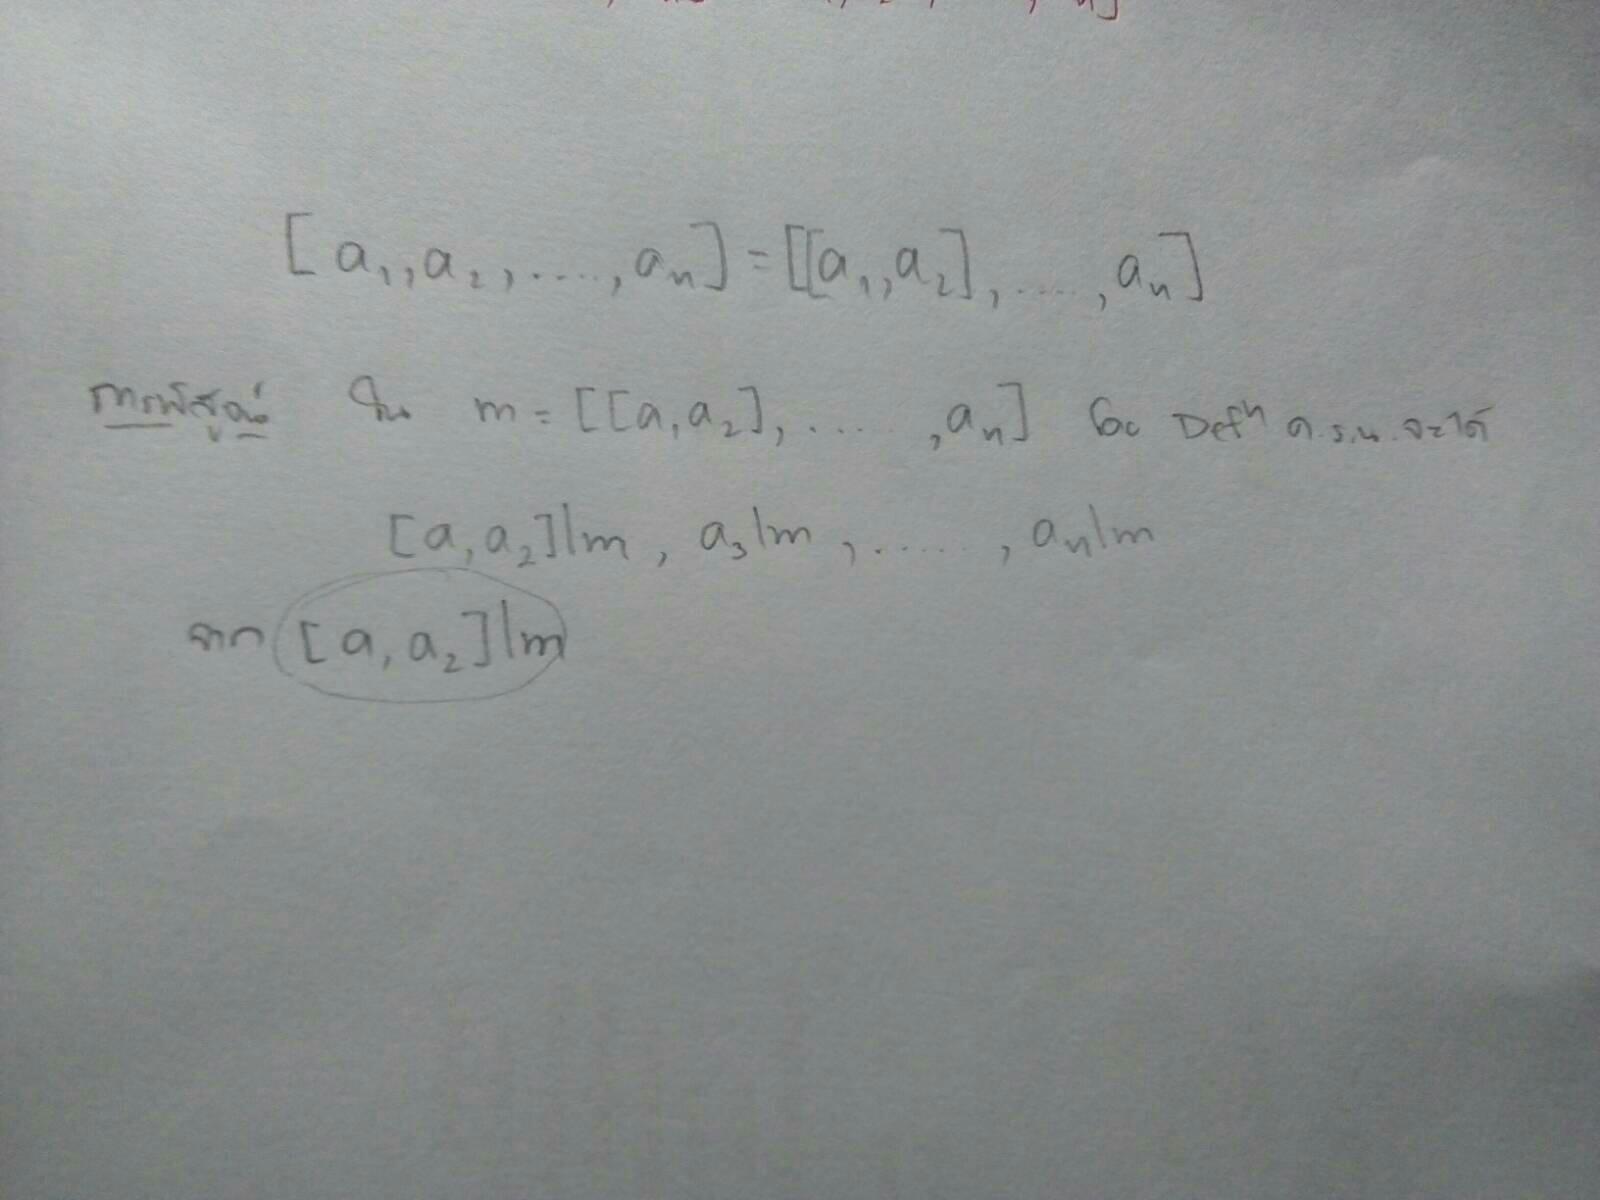 [a₁,a₂,....,aₙ] = [[a₁,a₂],....,aₙ]
การพิสูจน์ ให้ m = [[a₁,a₂],.....,aₙ] โดย Defⁿ ค.ร.น. จะได้
[a₁,a₂]|m, a₃|m, ....., aₙ|m
จาก [a₁,a₂]|m